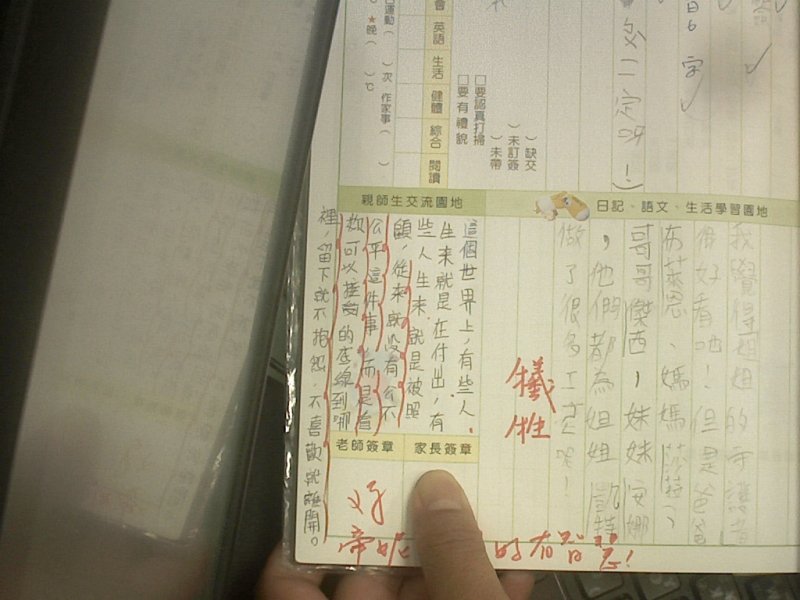 日6字
次二定呀!)
( )缺交
( )未訂簽
( )未帶
□要認真打掃
□要有禮貌
會
英語
生活
健體
綜合
閱讀
運動( )次 作家事( )
★晚( )℃
日記、語文、生活學習園地
我覺得姐姐的守護者
很好看吧!但是爸爸
布萊恩、媽媽莎菈、
哥哥傑西,妹妹安娜
,他們都為姐姐凱特
做了很多工呢!
犧牲
親師生交流園地
這個世界上,有些人,
生來就是在付出,有
些人生來就是被照
顧,從來就沒有公不
公平這件事,而是看
妳可以接受的底線到哪
裡,留下就不抱怨,不喜歡就離開。
家長簽章
老師簽章
好
的有智慧!